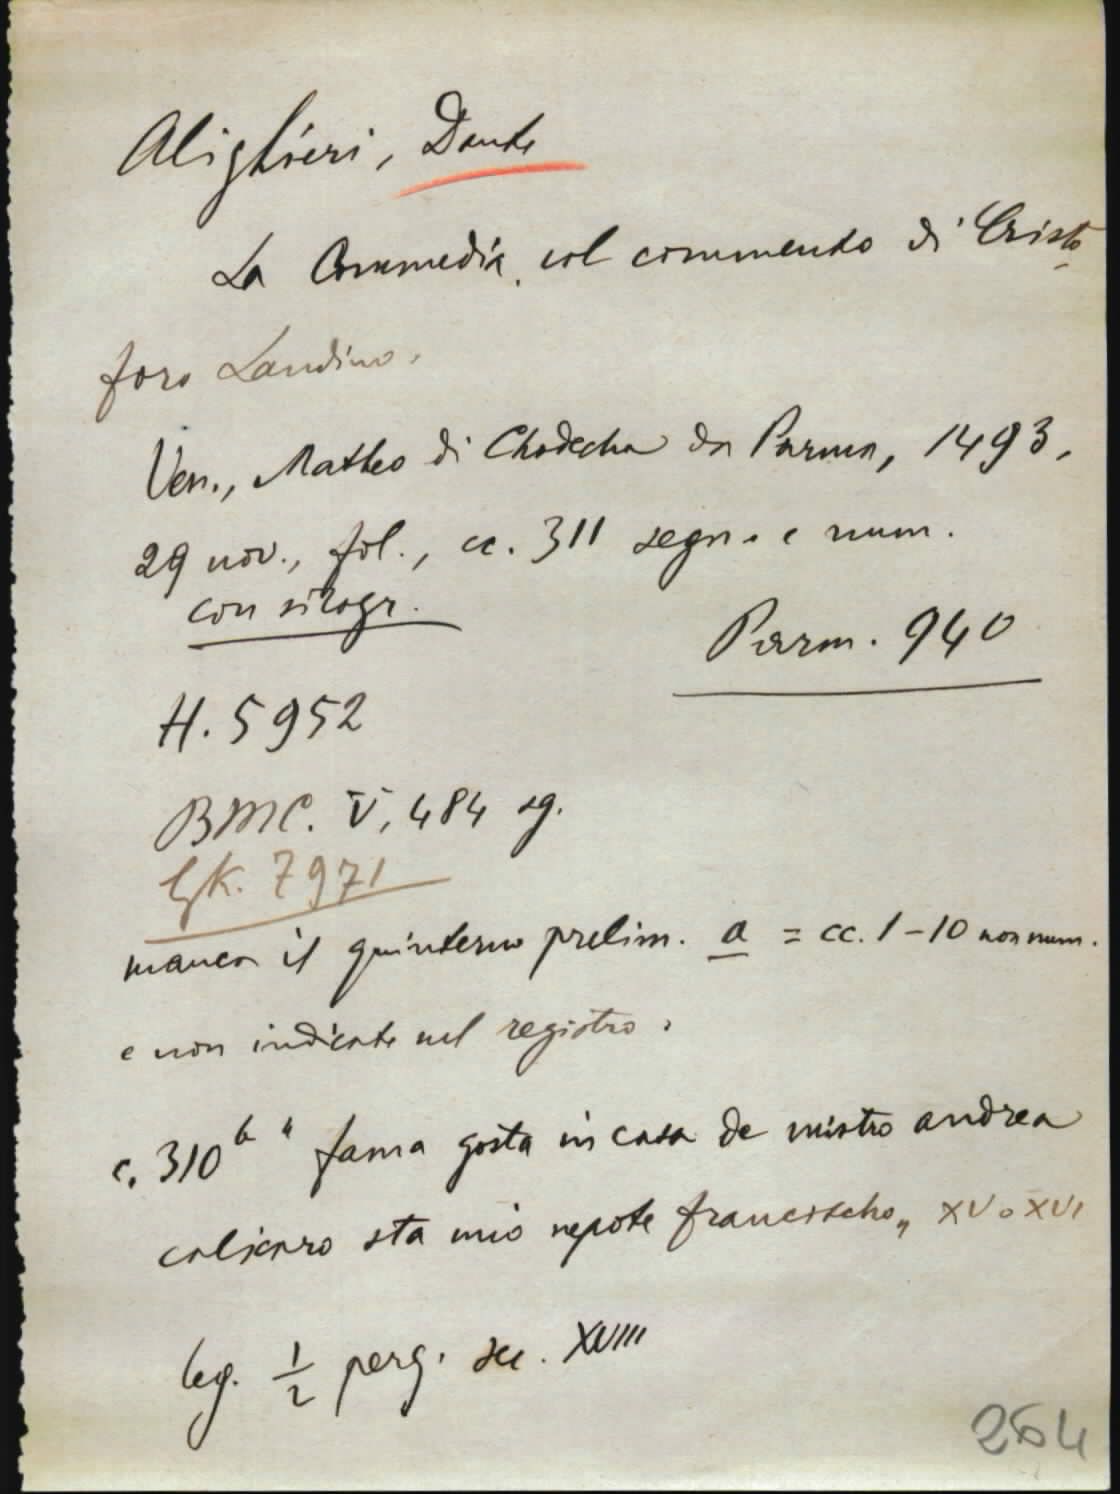 Alighieri, Dante
La Commedia, col commento di Cristo-
foro Landino.
Ven., Matteo di Chodecha da Parma, 1493,
29 nov., fol., cc. 311 segn. e num.
con silogr.
Parm. 940
H. 5952
BMC. V, 484 sg.
GK. 7971
manca il quinterno prelim. a = cc. 1-10 non num.
e non indicate nel registro.
c. 310b " fama gosta in casa de mistro andrea
calicaro sta mio nepote francischo„ XV o XVI
leg. 1/2 perg. sec. XVIII
264